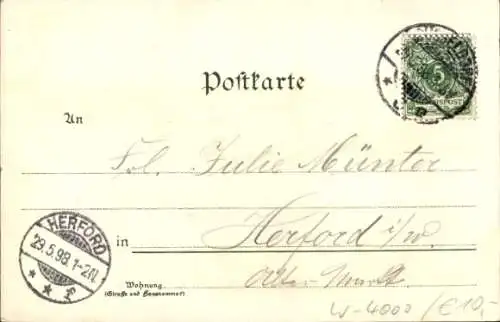 5
REICHSPOST
Postkarte
An
Frl. Julie Münter
HERFORD
29.5.98. 1-2N.
in Herford i/w.
Wohnung
(Straße und Hausnummer)
Alter Markt
W-4000 /€10,-